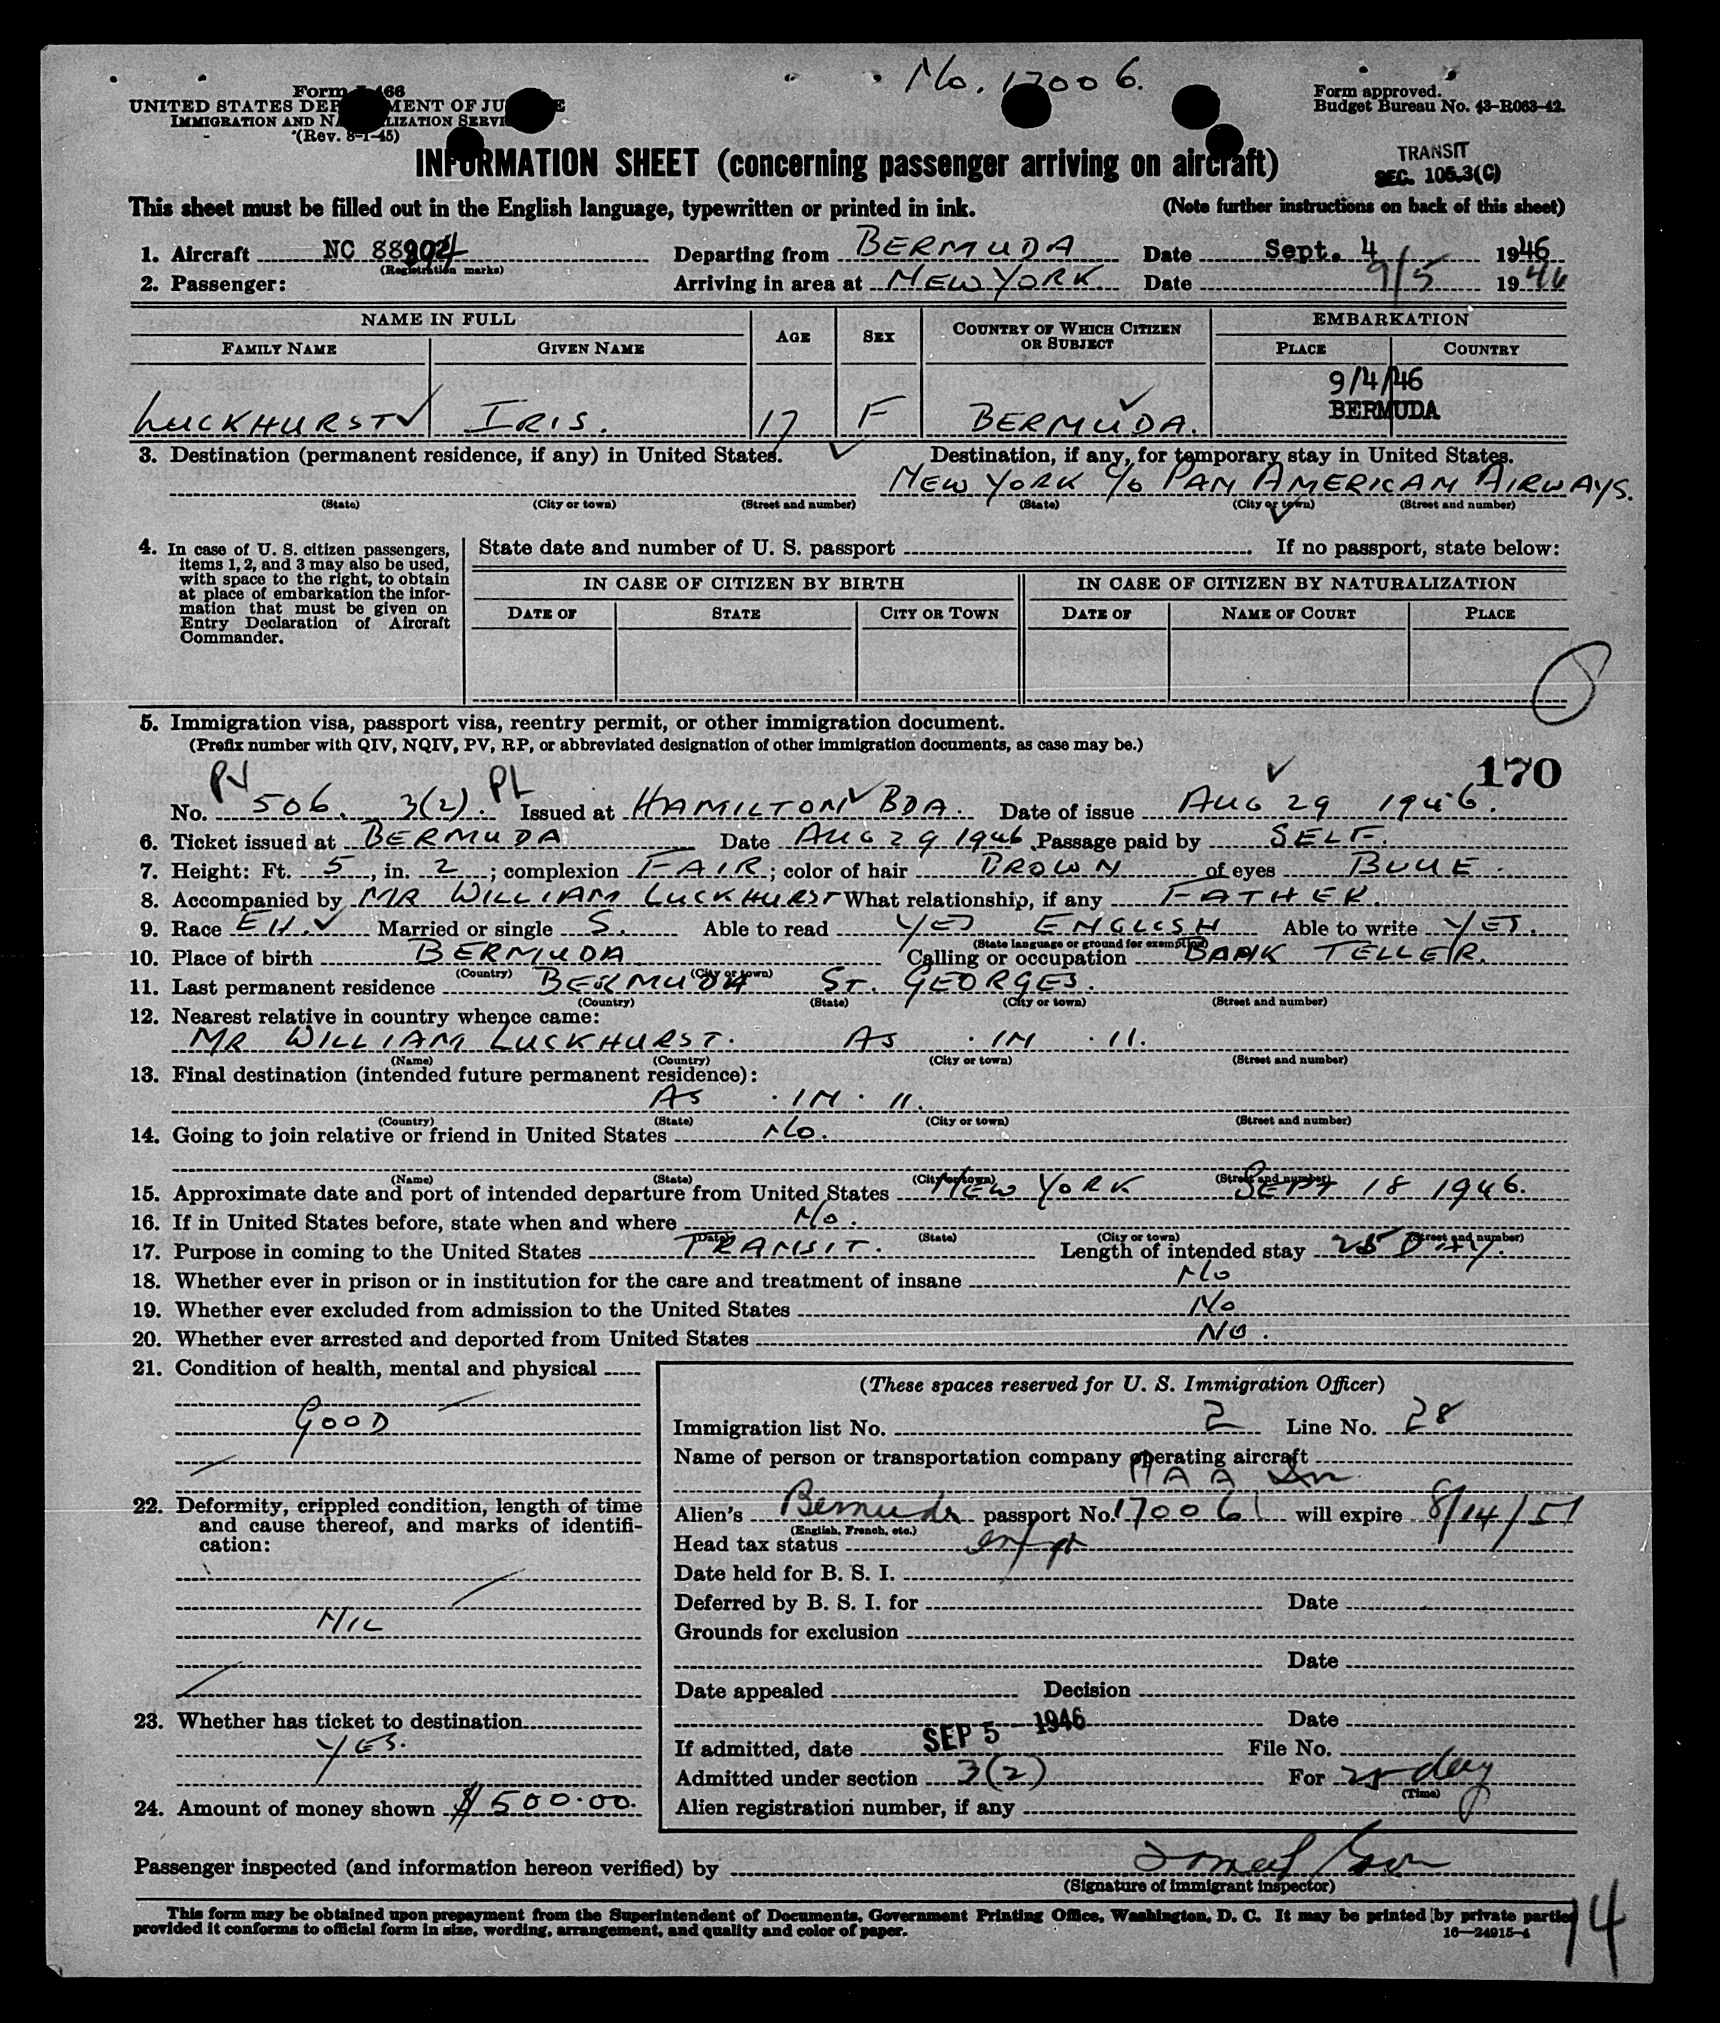 No. 17006.
Form I-466
UNITED STATES DEPARTMENT OF JUSTICE
IMMIGRATION AND NATURALIZATION SERVICE
(Rev. 8-1-45)
Form approved.
Budget Bureau No. 43-R063-42.
INFORMATION SHEET (concerning passenger arriving on aircraft)
TRANSIT
SEC. 105.3(C)
This sheet must be filled out in the English language, typewritten or printed in ink. (Note further instructions on back of this sheet)
1. Aircraft NC 88904 Departing from BERMUDA Date Sept. 4 1946
(Registration marks)
2. Passenger: Arriving in area at NEW YORK Date 9/5 1946
NAME IN FULL AGE SEX COUNTRY OF WHICH CITIZEN OR SUBJECT EMBARKATION
FAMILY NAME GIVEN NAME PLACE COUNTRY
9/4/46
LUCKHURST IRIS. 17 F BERMUDA. BERMUDA
3. Destination (permanent residence, if any) in United States. Destination, if any, for temporary stay in United States.
NEW YORK C/O PAN AMERICAN AIRWAYS.
(State) (City or town) (Street and number) (State) (City or town) (Street and number)
4. In case of U. S. citizen passengers, items 1, 2, and 3 may also be used, with space to the right, to obtain at place of embarkation the information that must be given on Entry Declaration of Aircraft Commander.
State date and number of U. S. passport If no passport, state below:
IN CASE OF CITIZEN BY BIRTH IN CASE OF CITIZEN BY NATURALIZATION
DATE OF STATE CITY OR TOWN DATE OF NAME OF COURT PLACE
5. Immigration visa, passport visa, reentry permit, or other immigration document.
(Prefix number with QIV, NQIV, PV, RP, or abbreviated designation of other immigration documents, as case may be.)
170
No. PV 506. 3(2). PL Issued at HAMILTON BDA. Date of issue AUG 29 1946.
6. Ticket issued at BERMUDA Date AUG 29 1946 Passage paid by SELF.
7. Height: Ft. 5, in. 2; complexion FAIR; color of hair BROWN of eyes BLUE.
8. Accompanied by MR WILLIAM LUCKHURST What relationship, if any FATHER.
9. Race EH. Married or single S. Able to read YES ENGLISH Able to write YES.
(State language or ground for exemption)
10. Place of birth BERMUDA Calling or occupation BANK TELLER.
(Country) (City or town)
11. Last permanent residence BERMUDA ST. GEORGES.
(Country) (State) (City or town) (Street and number)
12. Nearest relative in country whence came:
MR WILLIAM LUCKHURST. AS . IN . 11.
(Name) (Country) (City or town) (Street and number)
13. Final destination (intended future permanent residence):
AS . IN . 11.
(Country) (State) (City or town) (Street and number)
14. Going to join relative or friend in United States NO.
(Name) (State) (City or town) (Street and number)
15. Approximate date and port of intended departure from United States NEW YORK SEPT 18 1946.
16. If in United States before, state when and where NO.
(Date) (State) (City or town) (Street and number)
17. Purpose in coming to the United States TRANSIT. Length of intended stay 25 DAY.
18. Whether ever in prison or in institution for the care and treatment of insane NO
19. Whether ever excluded from admission to the United States NO
20. Whether ever arrested and deported from United States NO.
21. Condition of health, mental and physical
GOOD
22. Deformity, crippled condition, length of time and cause thereof, and marks of identification:
NIL
23. Whether has ticket to destination
YES.
24. Amount of money shown $500.00.
(These spaces reserved for U. S. Immigration Officer)
Immigration list No. 2 Line No. 28
Name of person or transportation company operating aircraft
Alien's Bermuda passport No. 17006 will expire 8/14/51
(English, French, etc.)
Head tax status
Date held for B. S. I.
Deferred by B. S. I. for Date
Grounds for exclusion
Date
Date appealed Decision
Date
If admitted, date SEP 5 1946 File No.
Admitted under section 3(2) For 25 day
(Time)
Alien registration number, if any
Passenger inspected (and information hereon verified) by
(Signature of immigrant inspector)
This form may be obtained upon prepayment from the Superintendent of Documents, Government Printing Office, Washington, D. C. It may be printed by private parties
provided it conforms to official form in size, wording, arrangement, and quality and color of paper. 16—24915-4
14